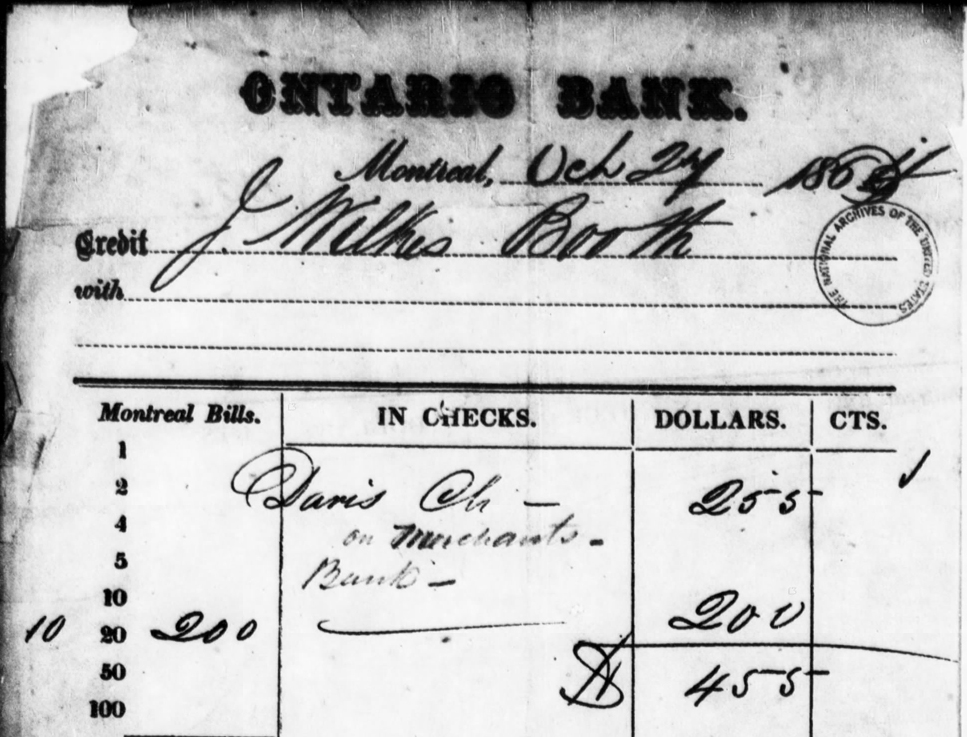 ONTARIO BANK.
Montreal, Oct 27 1864
Credit J Wilkes Booth
with
THE NATIONAL ARCHIVES OF THE UNITED STATES
Montreal Bills. IN CHECKS. DOLLARS. CTS.
1
2 Davis Ch — 255
4 on Merchants -
5 Bank -
10 200
10 20 200
50 $ 455
100